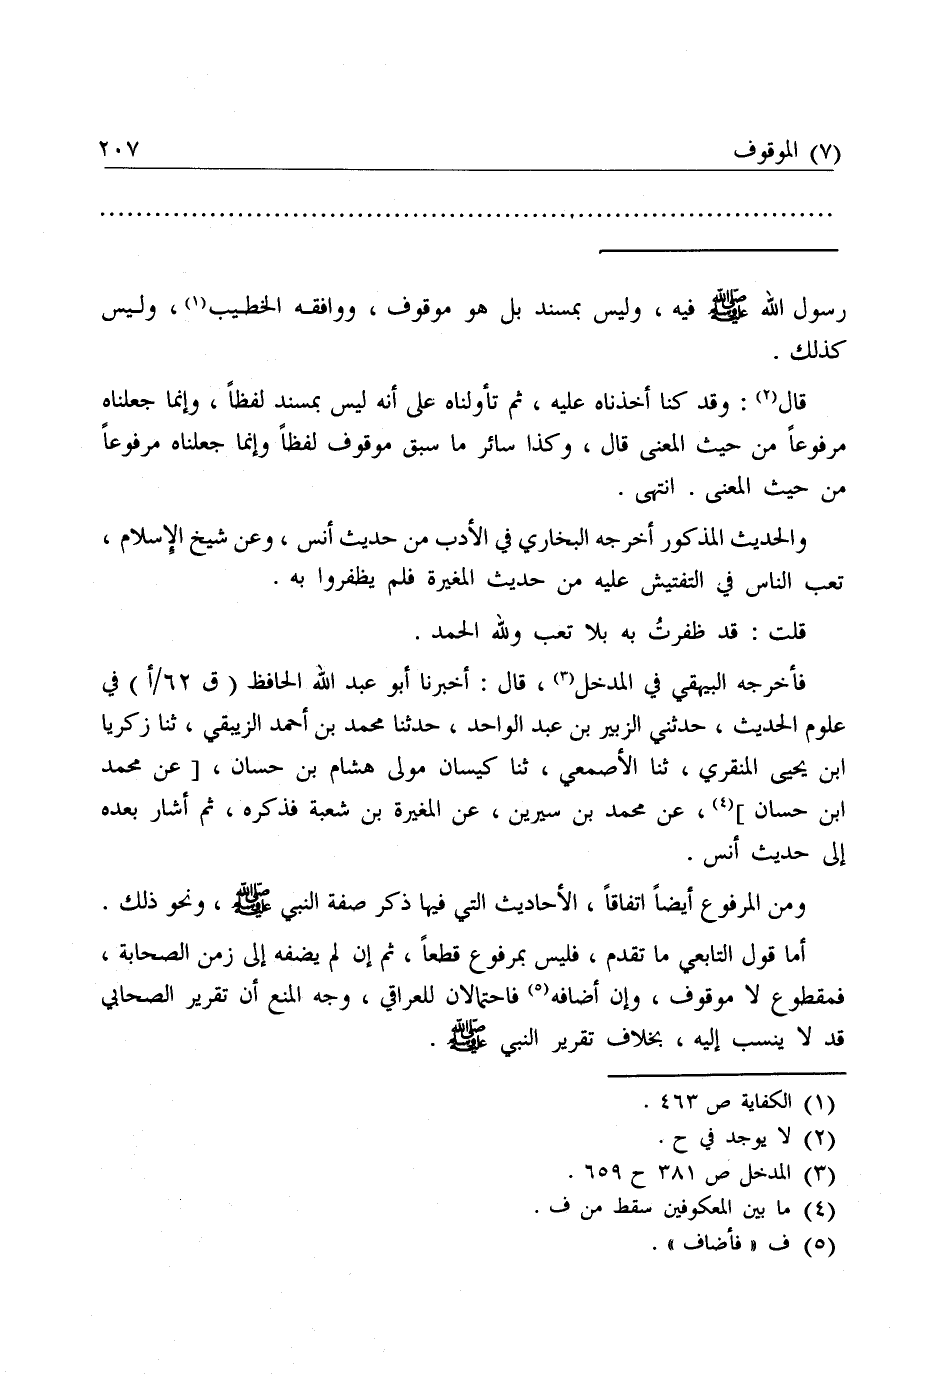 (٧) الموقوف ٢٠٧
رسول الله ﷺ فيه ، وليس بمسند بل هو موقوف ، ووافقه الخطيب(١) ، وليس
كذلك .
قال(٢) : وقد كنا أخذناه عليه ، ثم تأولناه على أنه ليس بمسند لفظاً ، وإنما جعلناه
مرفوعاً من حيث المعنى قال ، وكذا سائر ما سبق موقوف لفظاً وإنما جعلناه مرفوعاً
من حيث المعنى . انتهى .
والحديث المذكور أخرجه البخاري في الأدب من حديث أنس ، وعن شيخ الإسلام ،
تعب الناس في التفتيش عليه من حديث المغيرة فلم يظفروا به .
قلت : قد ظفرتُ به بلا تعب ولله الحمد .
فأخرجه البيهقي في المدخل(٣) ، قال : أخبرنا أبو عبد الله الحافظ ( ق ٦٢/أ ) في
علوم الحديث ، حدثني الزبير بن عبد الواحد ، حدثنا محمد بن أحمد الزيبقي ، ثنا زكريا
ابن يحيى المنقري ، ثنا الأصمعي ، ثنا كيسان مولى هشام بن حسان ، [ عن محمد
ابن حسان ](٤) ، عن محمد بن سيرين ، عن المغيرة بن شعبة فذكره ، ثم أشار بعده
إلى حديث أنس .
ومن المرفوع أيضاً اتفاقاً ، الأحاديث التي فيها ذكر صفة النبي ﷺ ، ونحو ذلك .
أما قول التابعي ما تقدم ، فليس بمرفوع قطعاً ، ثم إن لم يضفه إلى زمن الصحابة ،
فمقطوع لا موقوف ، وإن أضافه(٥) فاحتمالان للعراقي ، وجه المنع أن تقرير الصحابي
قد لا ينسب إليه ، بخلاف تقرير النبي ﷺ .
(١) الكفاية ص ٤٦٣ .
(٢) لا يوجد في ح .
(٣) المدخل ص ٣٨١ ح ٦٥٩ .
(٤) ما بين المعكوفين سقط من ف .
(٥) ف « فأضاف » .